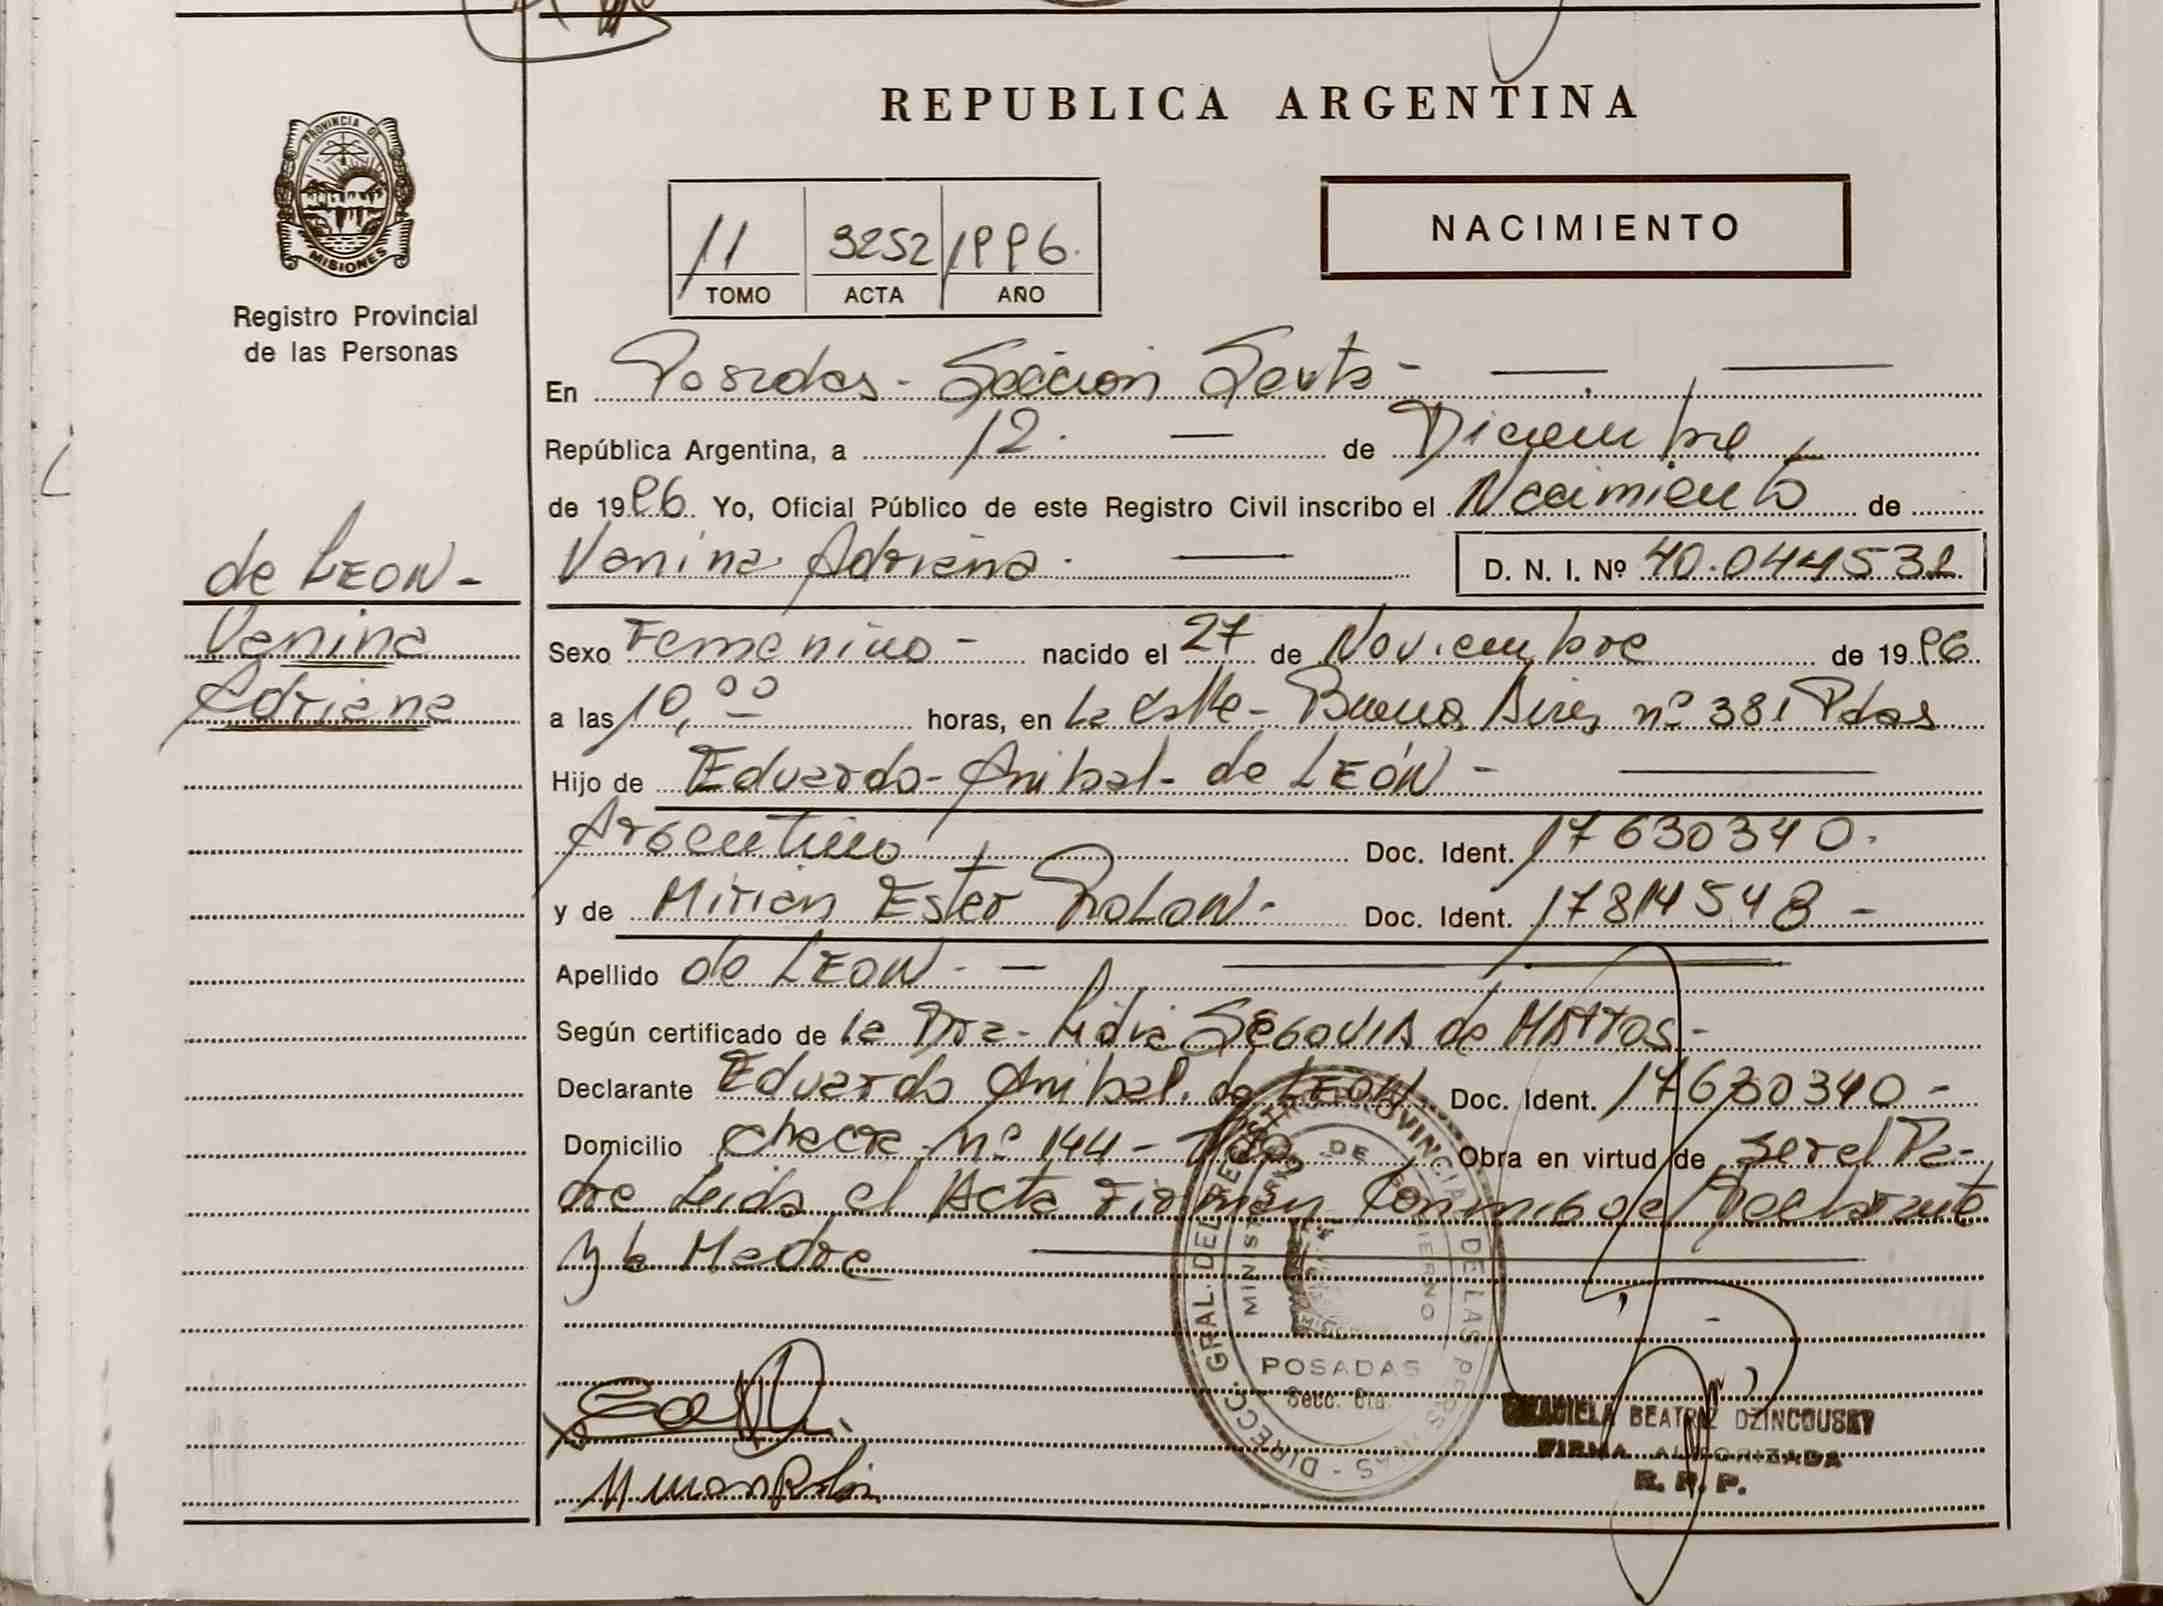 PROVINCIA DE
MISIONES
Registro Provincial
de las Personas
de LEON-
Vanina
Adriana
REPUBLICA ARGENTINA
11 3252 1996.
TOMO ACTA AÑO
NACIMIENTO
En Posadas - Sección Sexta -
República Argentina, a 12. de Diciembre
de 1996 Yo, Oficial Público de este Registro Civil inscribo el Nacimiento de
Vanina Adriana. D. N. I. Nº 40.044532
Sexo Femenino - nacido el 27 de Noviembre de 1996
a las 10,00 horas, en la calle - Buenos Aires nº 381 Pdas
Hijo de Eduardo - Anibal - de LEÓN -
Argentino Doc. Ident. 17630340.
y de Mirian Ester ROLON - Doc. Ident. 17814548 -
Apellido de LEON. -
Según certificado de la Dra - Lidia SEGOVIA de MATTOS -
Declarante Eduardo Anibal. de LEON Doc. Ident. 17630340 -
Domicilio Chacra nº 144 - Obra en virtud de ser el Pa-
dre Leida el Acta Firman Conmigo el Declarante
y la Madre
DIRECC. GRAL. DEL REGISTRO PROVINCIAL DE LAS PERSONAS
MINISTERIO DE GOBIERNO
POSADAS
Secc. 6ta.
GRACIELA BEATRIZ DZINCOUSKY
FIRMA AUTORIZADA
R. R. P.